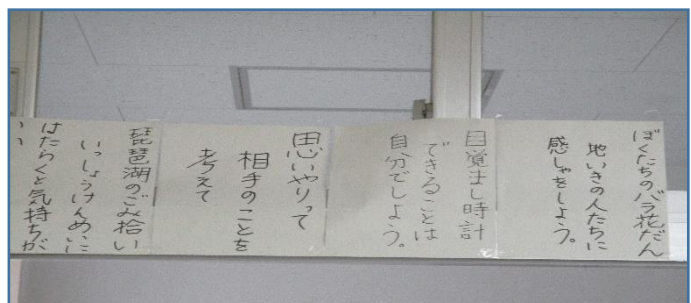 ぼくたちのバラ花だん
地いきの人たちに
感しゃをしよう。
目覚まし時計
できることは
自分でしよう。
思いやりって
相手のことを
考えて
琵琶湖のごみ拾い
いっしょうけんめいに
はたらくと気持ちが